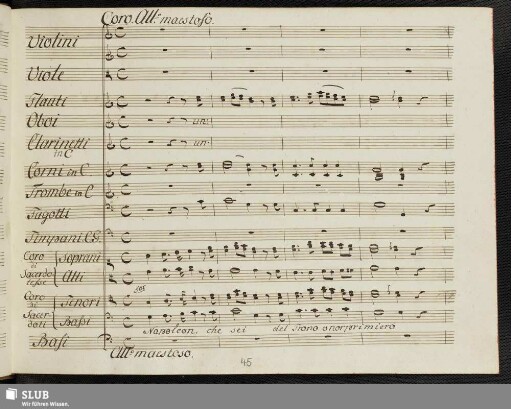 Coro. All.º maestoso.
Violini
Viole
Flauti
Oboi
un:
Clarinetti
in C
un:
Corni in C.
Trombe in C
Fagotti
Timpani C.G.
Coro
di
Sacerdo
tesse
Soprani
Alti
Coro
di
Sacer
doti
Tenori
Bassi
Napoleon, che sei del Trono onor primiero
Basi
All.º maestoso.
45
SLUB
Wir führen Wissen.